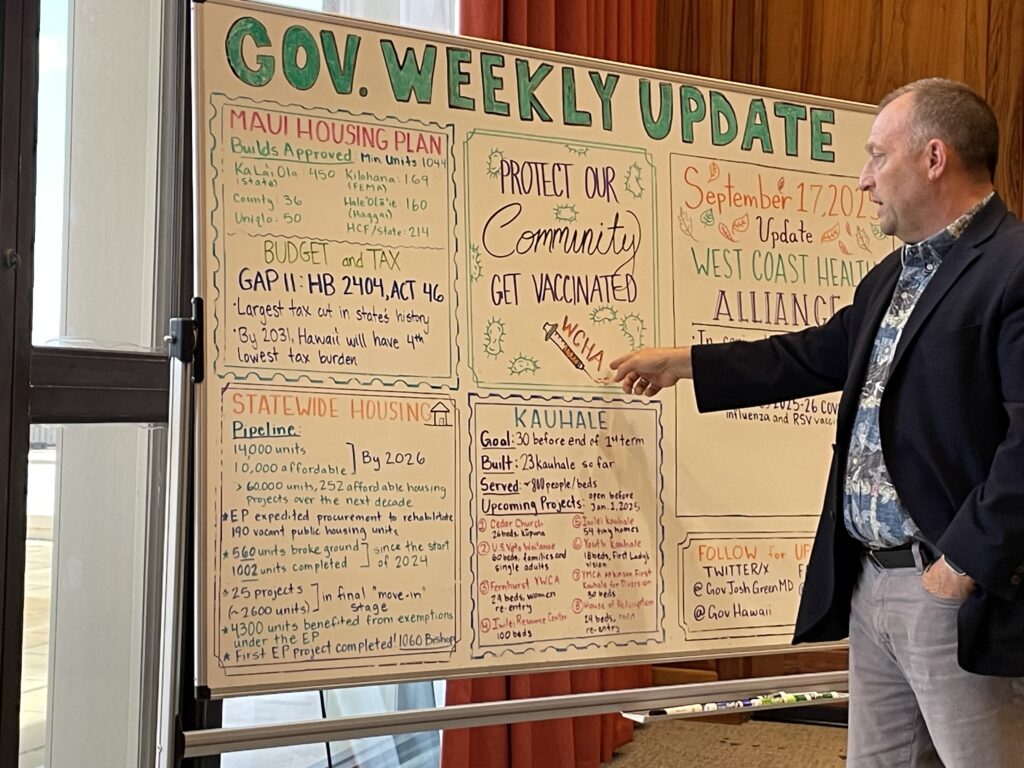 GOV. WEEKLY UPDATE
MAUI HOUSING PLAN
Builds Approved: Min. Units 1044
Ka La'i Ola: 450
(State)
County: 36
Uniqlo: 50
Kilohana: 169
(FEMA)
Hale 'Ōlā'ie 160
(Haggai)
HCF/State: 214
BUDGET and TAX
GAP II: HB 2404, ACT 46
·Largest tax cut in state's history
·By 2031, Hawaii will have 4th
lowest tax burden
STATEWIDE HOUSING
Pipeline:
14,000 units
10,000 affordable
By 2026
>60,000 units, 252 affordable housing
projects over the next decade
★EP expedited procurement to rehabilitate
190 vacant public housing units
★560 units broke ground
1002 units completed
since the start
of 2024
★25 projects
(~2600 units)
in final "move-in"
stage
★4300 units benefited from exemptions
under the EP
★First EP project completed! 1060 Bishop
PROTECT OUR
Community
GET VACCINATED
WCHA
KAUHALE
Goal: 30 before end of 1st term
Built: 23 kauhale so far
Served: ~800 people/beds
Upcoming Projects: open before
Jan. 1, 2025
① Cedar Church
26 beds, Kūpuna
② U.S. Vets Wai'anae
60 beds, families and
single adults
③ Fernhurst YWCA
29 beds, women
re-entry
④ Iwilei Resource Center
100 beds
⑤ Iwilei Kauhale
54 tiny homes
⑥ Youth Kauhale
18 beds, First Lady's
vision
⑦ YMCA Atkinson First
Kauhale for Diversion
30 beds
⑧ House of Redemption
24 beds, men
re-entry
September 17, 2025
Update
WEST COAST HEALTH
ALLIANCE
·In
2025-26 COV
influenza and RSV vacci
FOLLOW for UP
TWITTER/X
@GovJoshGreenMD
@GovHawaii